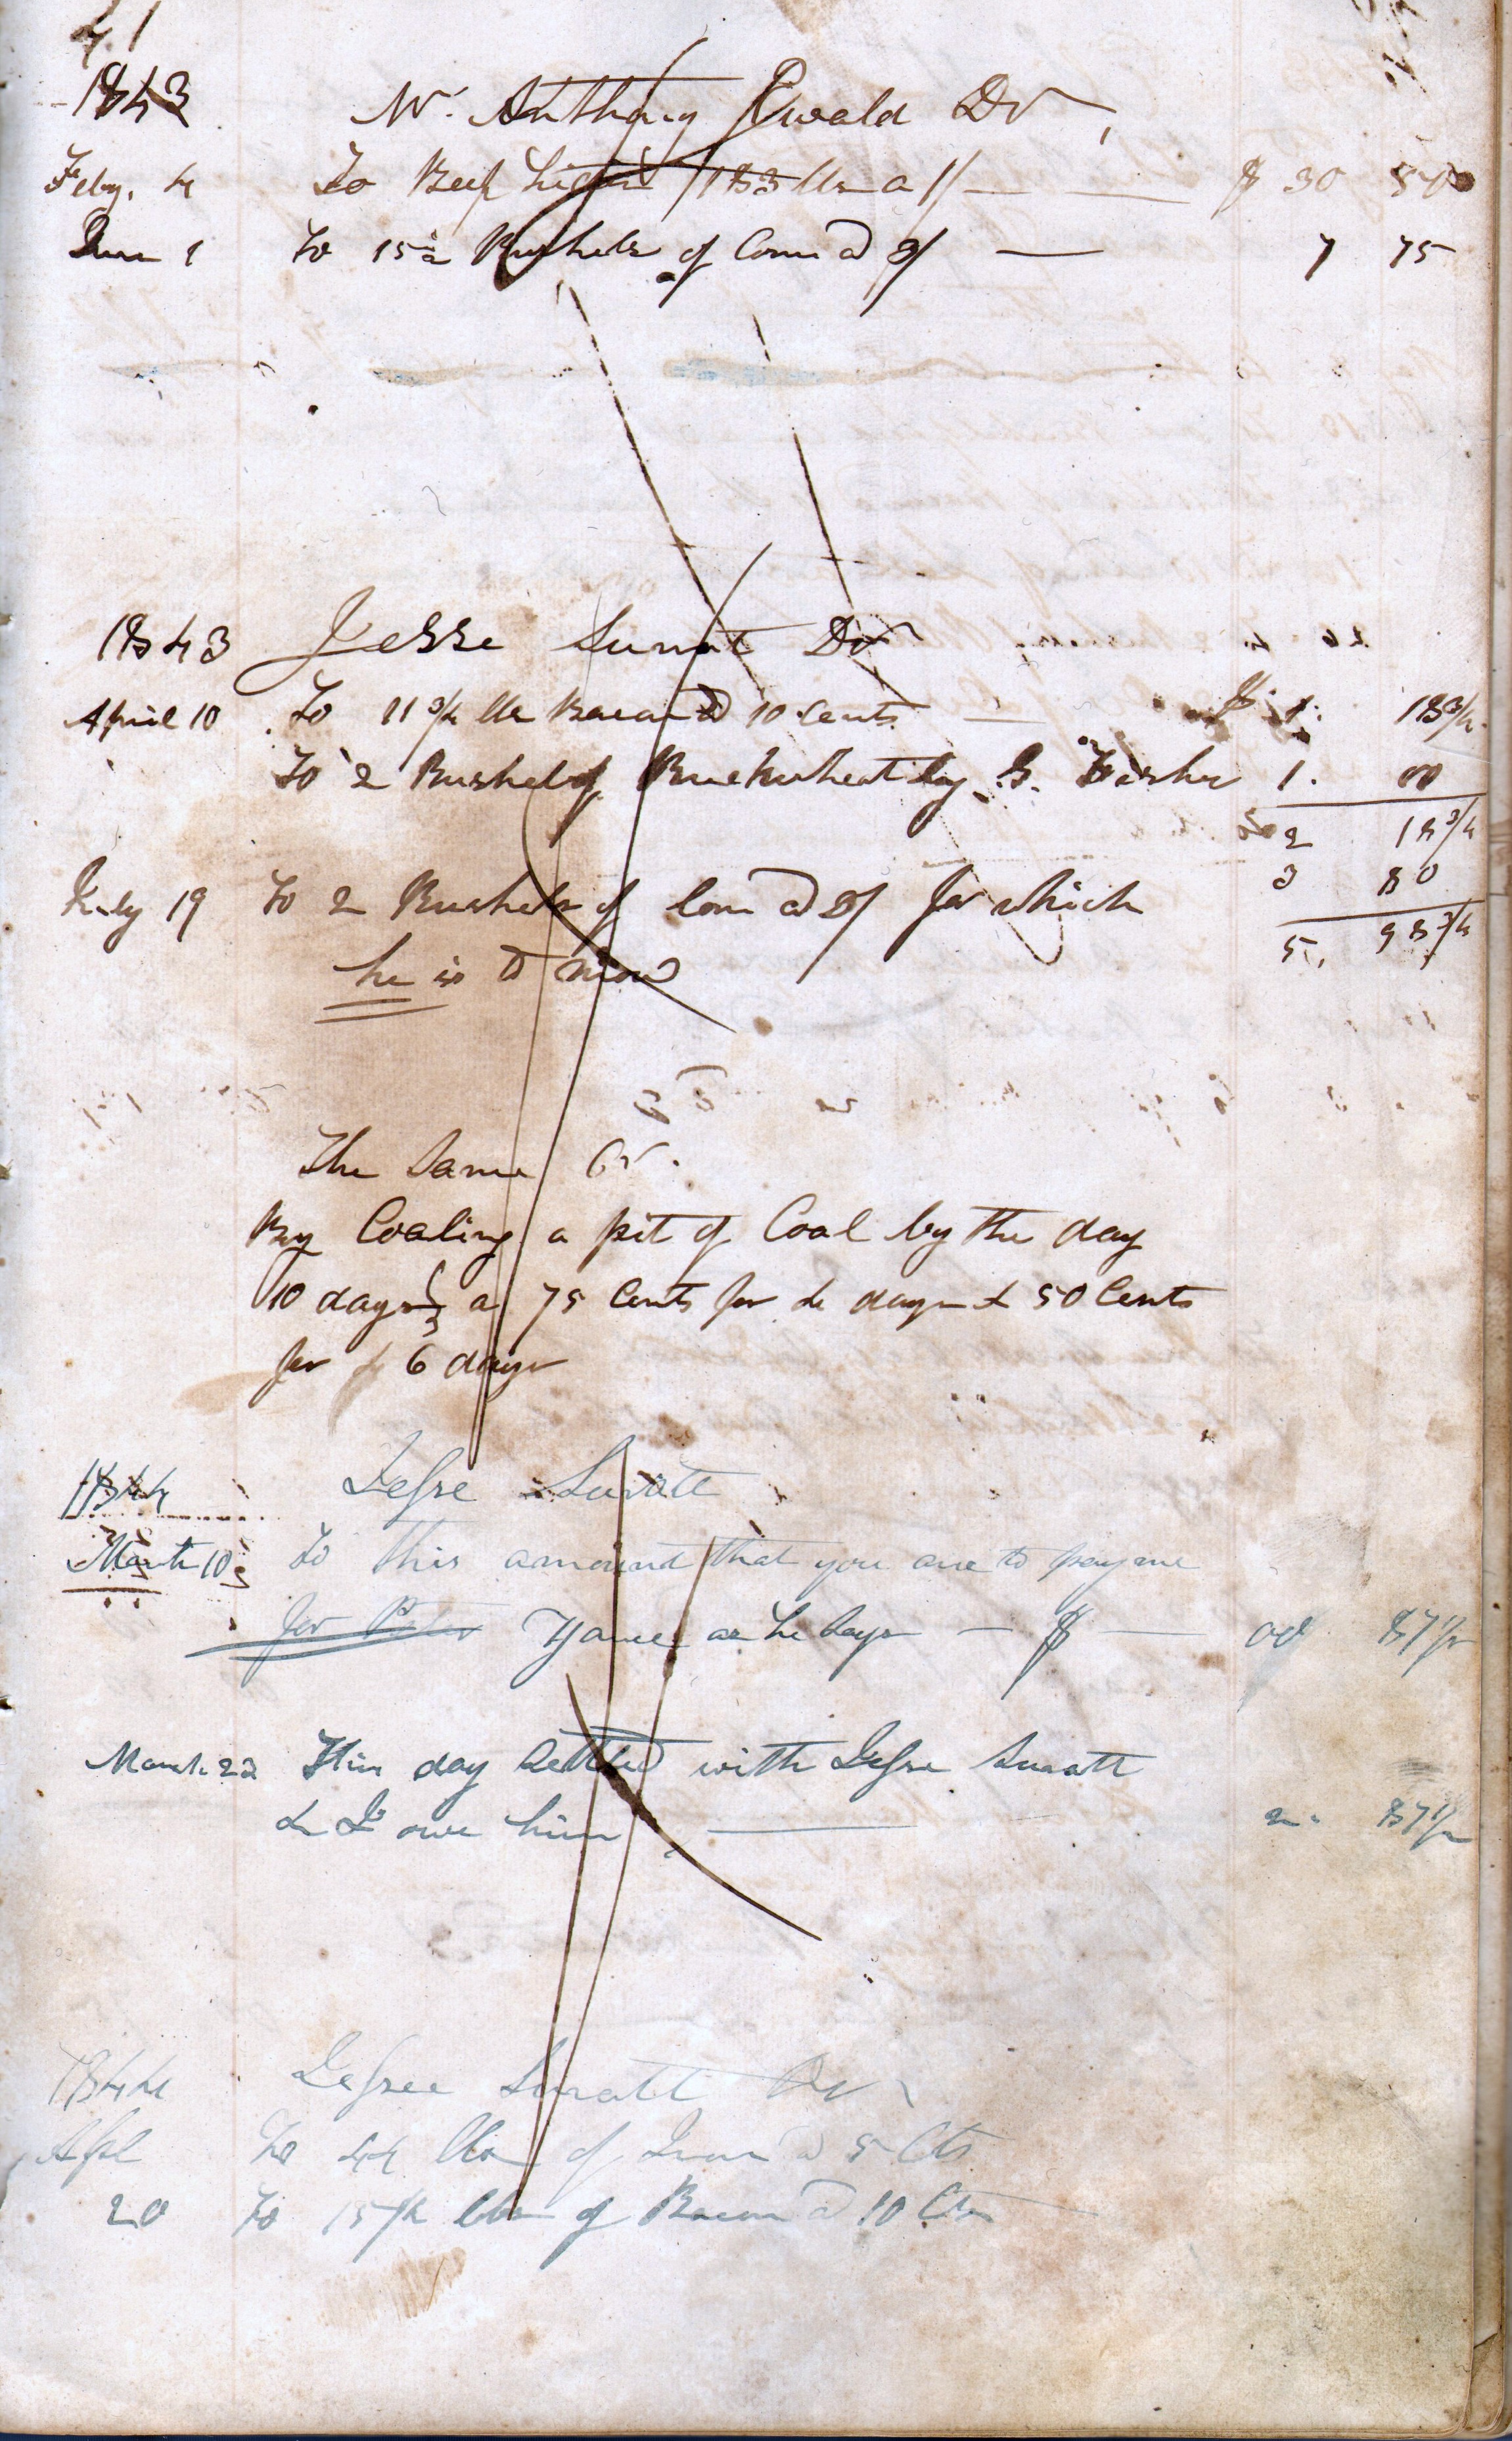 41
1843 Mr. Anthony Ewald Dr
Feby. 4 To Beef 183 lbs a 1/ $ 30 50
June 1 To 15½ Bushels of Corn @ 3/ 7 75
1843 Jesse Surat Dr
April 10 To 11 3/4 lbs Bacon @ 10 Cents $ 1. 18 3/4
To 2 Bushel of Buckwheat by G. Fisher 1. 00
2 18 3/4
3 80
July 19 To 2 Bushels of Corn @ 3/ for which
5, 98 3/4
he is to mow
The Same Cr.
By Coaling a pit of Coal by the day
10 days a 75 Cents for 4 days & 50 Cents
for 6 days
1844 Jesse Suratt
March 10 To this amount that you are to pay me
for Peter as he says $ 00 87½
March 22 This day Settled with Jesse Suratt
& I owe him 2. 87½
1844 Jessee Suratt Dr
Apl To 44 lbs of Iron @ 5 Cts
20 To 15 1/4 lbs of Bacon @ 10 Cts